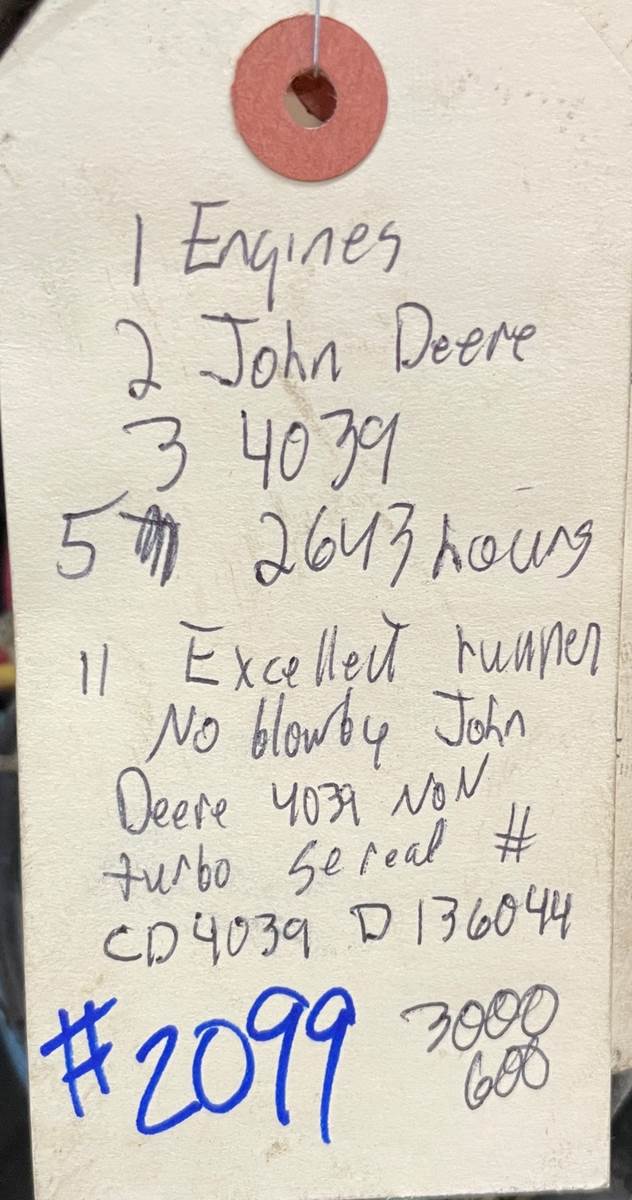 1 Engines
2 John Deere
3 4039
5 2643 hours
11 Excellect runner
No blowby John
Deere 4039 NON
turbo Sereal #
CD4039 D 136044
#2099
3000
600